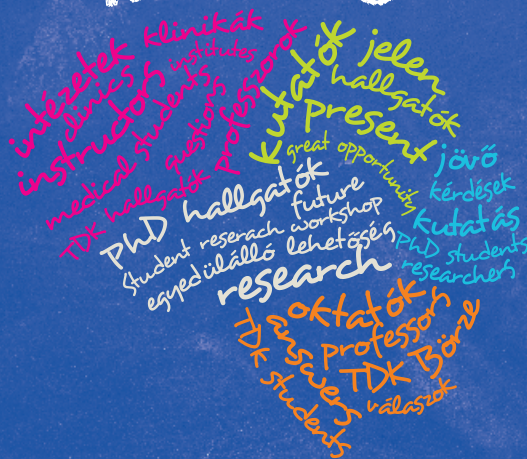 intézetek klinikák
clinics institutes
instructors
medical students
questions
TDK hallgatók professzorok
kutatók jelen
hallgatók
present
great opportunity
jövő
kérdések
kutatás
PhD students
researchers
PhD hallgatók
future
Student reserach workshop
egyedülálló lehetőség
research
oktatók
professors
answers
TDK Börze
TDK students
válaszok